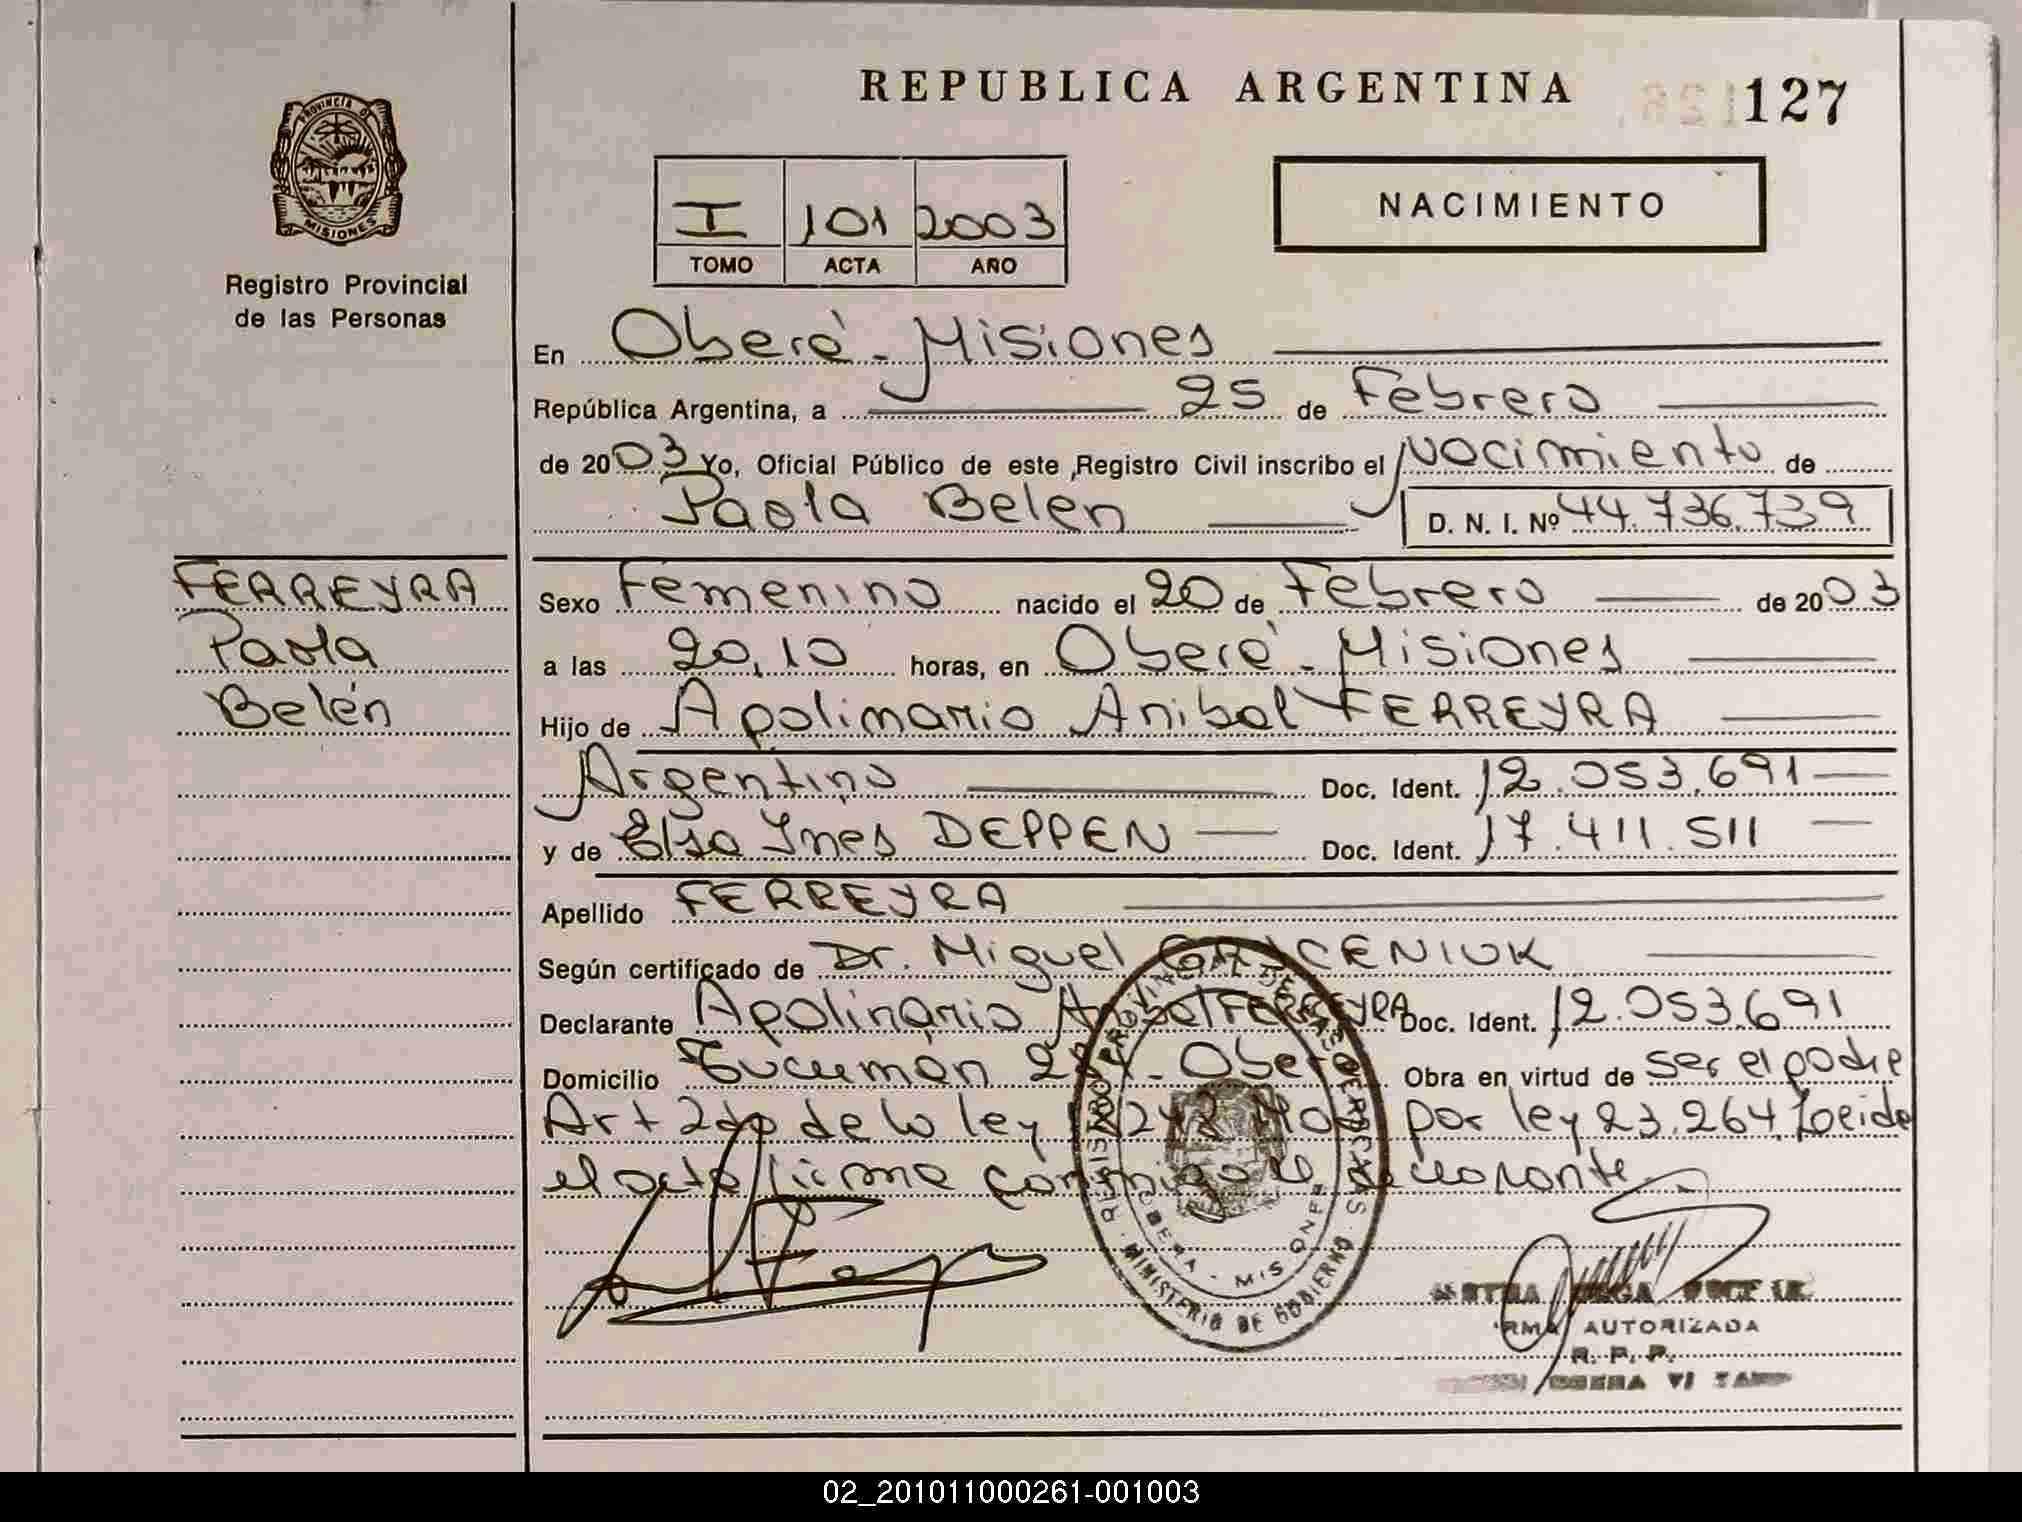 REPUBLICA ARGENTINA
127
PROVINCIA D
MISIONES
Registro Provincial
de las Personas
I 101 2003
TOMO ACTA AÑO
NACIMIENTO
En Oberá - Misiones
República Argentina, a 25 de Febrero
de 2003 Yo, Oficial Público de este Registro Civil inscribo el Nacimiento de
Paola Belen D. N. I. Nº 44.736.739
FERREYRA
Paola
Belén
Sexo Femenino nacido el 20 de Febrero de 2003
a las 20,10 horas, en Oberá - Misiones
Hijo de Apolinario Anibal FERREYRA
Argentino Doc. Ident. 12.053.691
y de Elsa Ines DEPPEN Doc. Ident. 17.411.511
Apellido FERREYRA
Según certificado de Dr. Miguel
Declarante Apolinario Anibal FERREYRA Doc. Ident. 12.053.691
Domicilio Tucumán Oberá Obra en virtud de ser el padre
Art 2do de la ley por ley 23.264 Leida
el acta firma conmigo el declarante
REGISTRO PROVINCIAL DE LAS PERSONAS
OBERA - MISIONES
MINISTERIO DE GOBIERNO
FIRMA AUTORIZADA
R. P. P.
OBERA
02_201011000261-001003